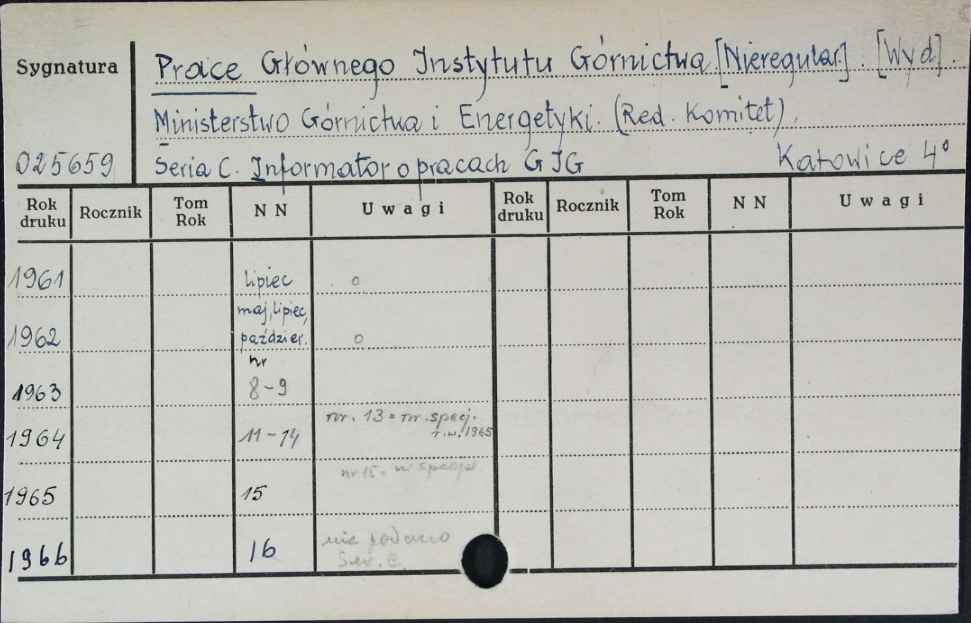 Sygnatura
Prace Głównego Instytutu Górnictwa [Nieregular.]. [Wyd].
Ministerstwo Górnictwa i Energetyki. (Red. Komitet).
025659
Seria C. Informator o pracach GIG
Katowice 4°
Rok druku Rocznik Tom Rok NN Uwagi Rok druku Rocznik Tom Rok NN Uwagi
1961 lipiec o
maj, lipiec,
1962 paździer. o
nr
1963 8-9
nr. 13 = nr. specj.
1964 11-14 r.w. 1965
nr 15 =
1965 15
nie podano
1966 16
Ser. C.